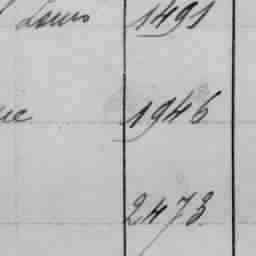 Louis 1491
ue 1946
2473